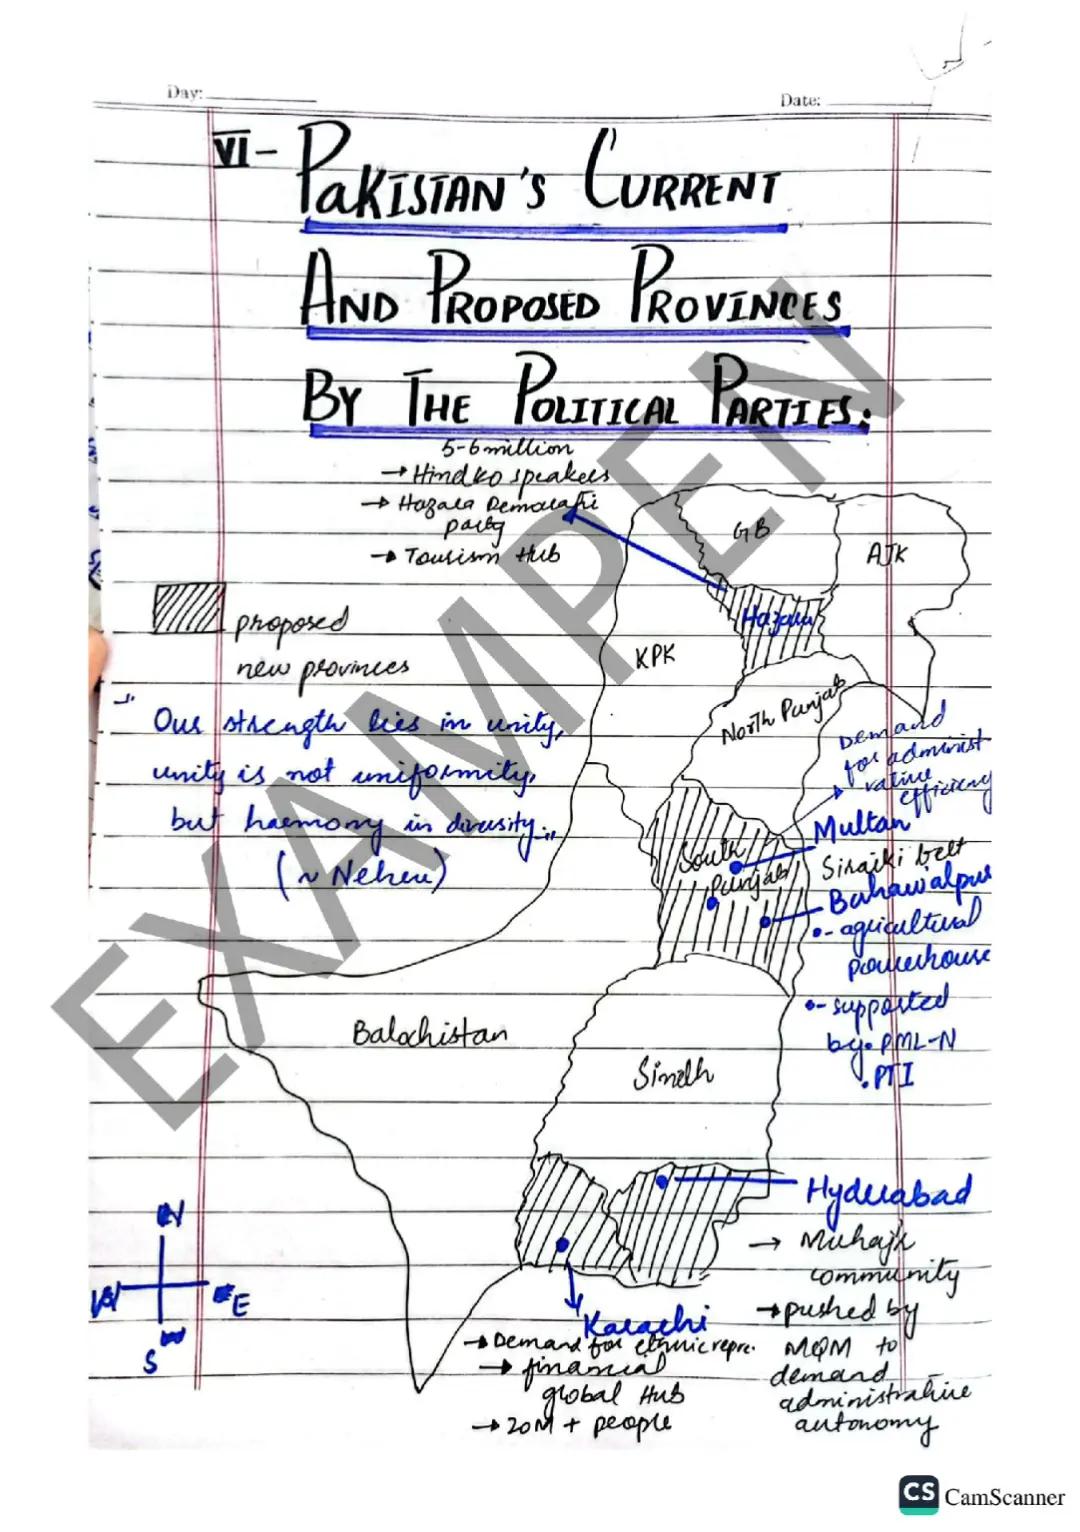 Day:
Date:
VI- PAKISTAN'S CURRENT
AND PROPOSED PROVINCES
BY THE POLITICAL PARTIES:
5-6 million
→ Hindko speakers
→ Hazara Democratic
party
→ Tourism Hub
GB
AJK
Hazara
proposed
new provinces
KPK
North Punjab
"Our strength lies in unity,
unity is not uniformity,
but harmony in diversity."
(~ Nehru)
Demand
for administ
rative
efficiency
Multan
Siraiki belt
South
Punjab
Bahawalpur
- agricultural
powerhouse
- supported
by • PML-N
• PTI
Balochistan
Sindh
Hyderabad
→ Muhajir
community
→ pushed by
MQM to
demand
administrative
autonomy
Karachi
→ Demand for ethnic repre.
→ financial
global Hub
→ 20M + people
N
W
E
S
EXAMPEN
CS CamScanner